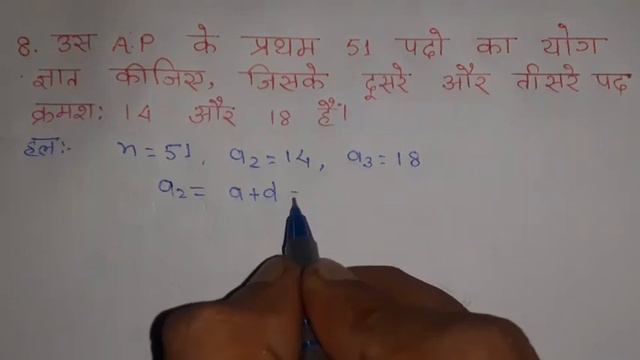 8. उस A.P के प्रथम 51 पदो का योग
ज्ञात कीजिए, जिसके दूसरे और तीसरे पद
क्रमश: 14 और 18 हैं।
हल:- n = 51, a₂ = 14, a₃ = 18
a₂ = a+d =